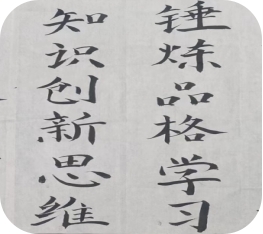 锤炼品格学习
知识创新思维